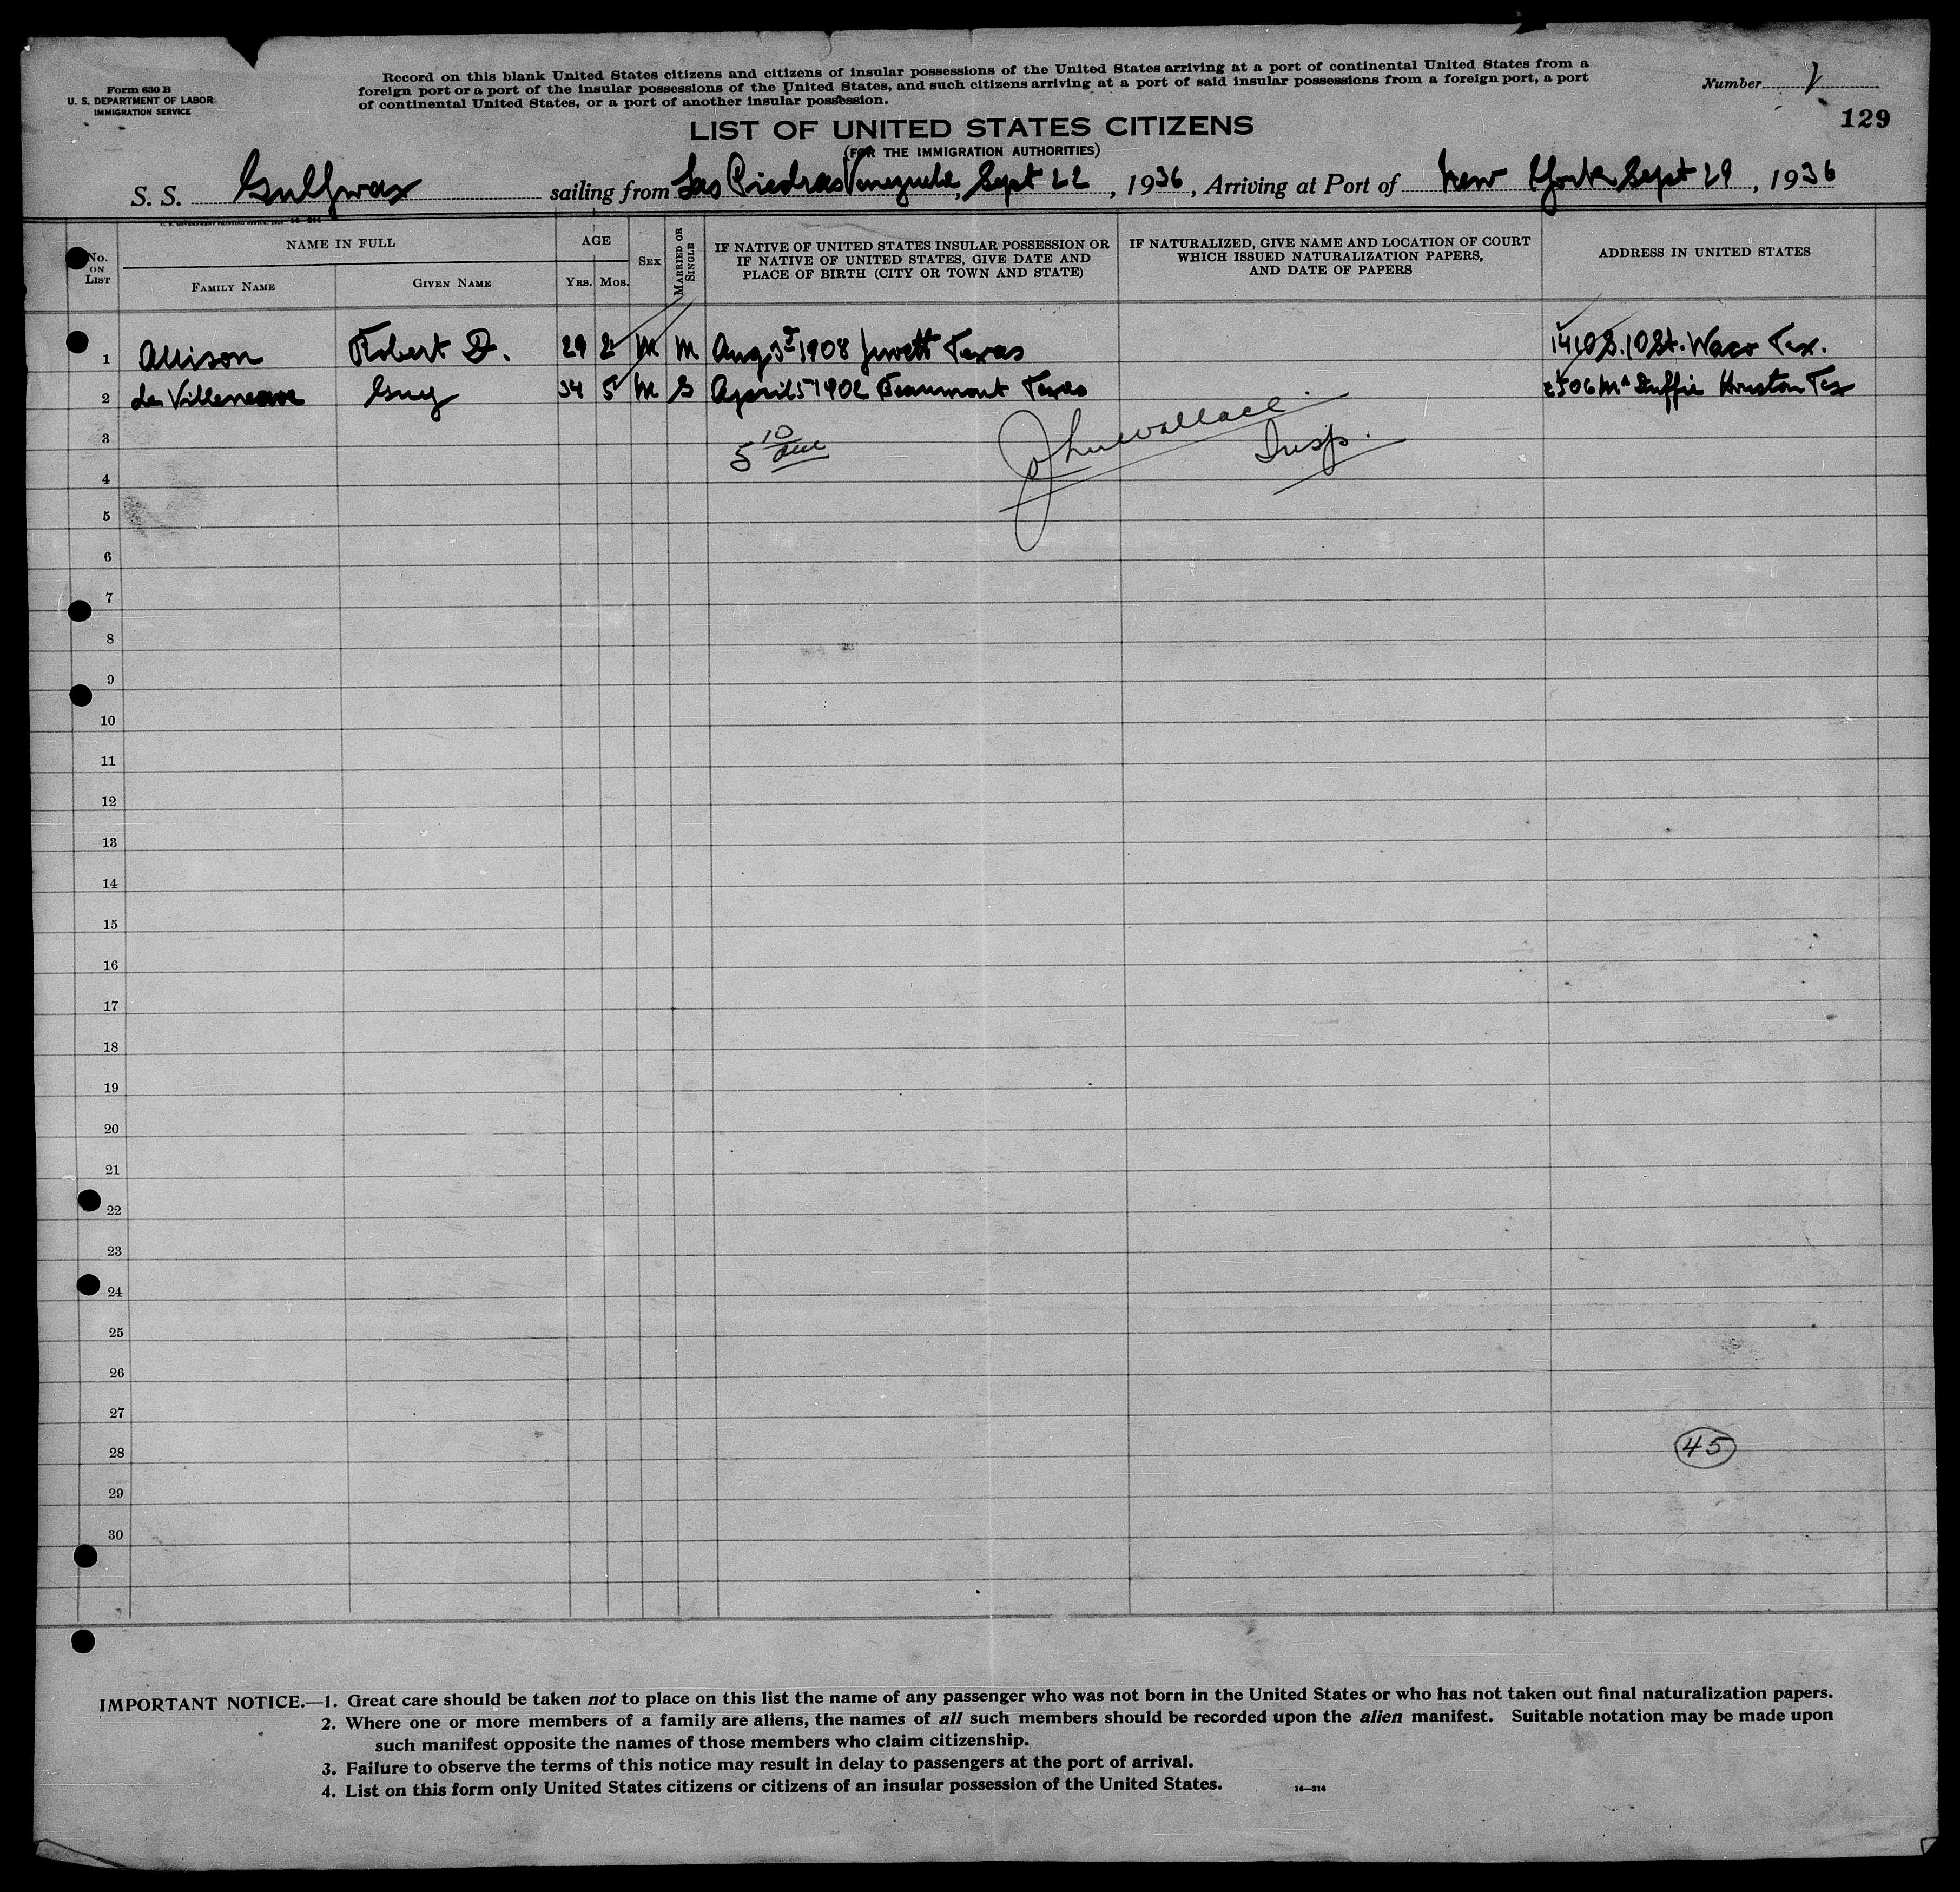 Form 630 B
U. S. DEPARTMENT OF LABOR
IMMIGRATION SERVICE
Record on this blank United States citizens and citizens of insular possessions of the United States arriving at a port of continental United States from a
foreign port or a port of the insular possessions of the United States, and such citizens arriving at a port of said insular possessions from a foreign port, a port
of continental United States, or a port of another insular possession.
Number
129
LIST OF UNITED STATES CITIZENS
(FOR THE IMMIGRATION AUTHORITIES)
S. S. Gulfwax sailing from Las Piedras Venezuela, Sept 22, 1936, Arriving at Port of New York Sept 29, 1936
No. ON LIST
NAME IN FULL
FAMILY NAME
GIVEN NAME
AGE
YRS. MOS.
SEX
MARRIED OR SINGLE
IF NATIVE OF UNITED STATES INSULAR POSSESSION OR
IF NATIVE OF UNITED STATES, GIVE DATE AND
PLACE OF BIRTH (CITY OR TOWN AND STATE)
IF NATURALIZED, GIVE NAME AND LOCATION OF COURT
WHICH ISSUED NATURALIZATION PAPERS,
AND DATE OF PAPERS
ADDRESS IN UNITED STATES
1 Allison Robert D. 29 2 M M Aug 1908 Jewett Texas 1410 S. 10 St. Waco Tex.
2 de Villeneuve Guy 34 5 M S April 5 1902 Beaumont Texas 2506 McDuffie Houston Tex
3 5 10 am John Wallace Insp.
4
5
6
7
8
9
10
11
12
13
14
15
16
17
18
19
20
21
22
23
24
25
26
27
28 45
29
30
IMPORTANT NOTICE.—1. Great care should be taken not to place on this list the name of any passenger who was not born in the United States or who has not taken out final naturalization papers.
2. Where one or more members of a family are aliens, the names of all such members should be recorded upon the alien manifest. Suitable notation may be made upon
such manifest opposite the names of those members who claim citizenship.
3. Failure to observe the terms of this notice may result in delay to passengers at the port of arrival.
4. List on this form only United States citizens or citizens of an insular possession of the United States.
14—314